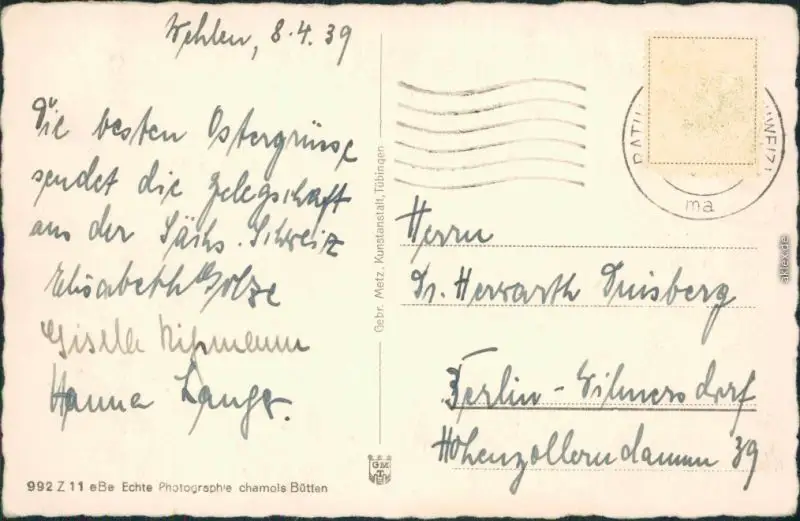 Wehlen, 8.4.39
Die besten Ostergrüsse
sendet die Gelegschaft
aus der Sächs. Schweiz
Elisabeth
Gisela
Hanna Lange.
Herrn
Dr. Herwarth Duisberg
Berlin-Wilmersdorf
Hohenzollerndamm 39
RATH
WEIZ)
ma
Gebr. Metz, Kunstanstalt, Tübingen
GMT
992 Z 11 eBe Echte Photographie chamois Bütten
aklex.de